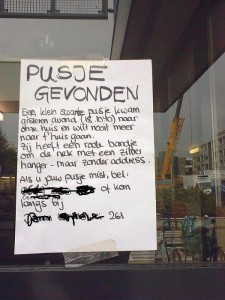 PUSJE
GEVONDEN
Een klein swarte pusje kwam
gisteren avond (18.10.10) naar
onze huis en will nooit meer
naar t'huis gaan.
Zij heeft een rode bandje
om de nek met een zilver
hanger - maar zonder address.
Als u jouw pusje mist, bel:
of kom
langs bij
261